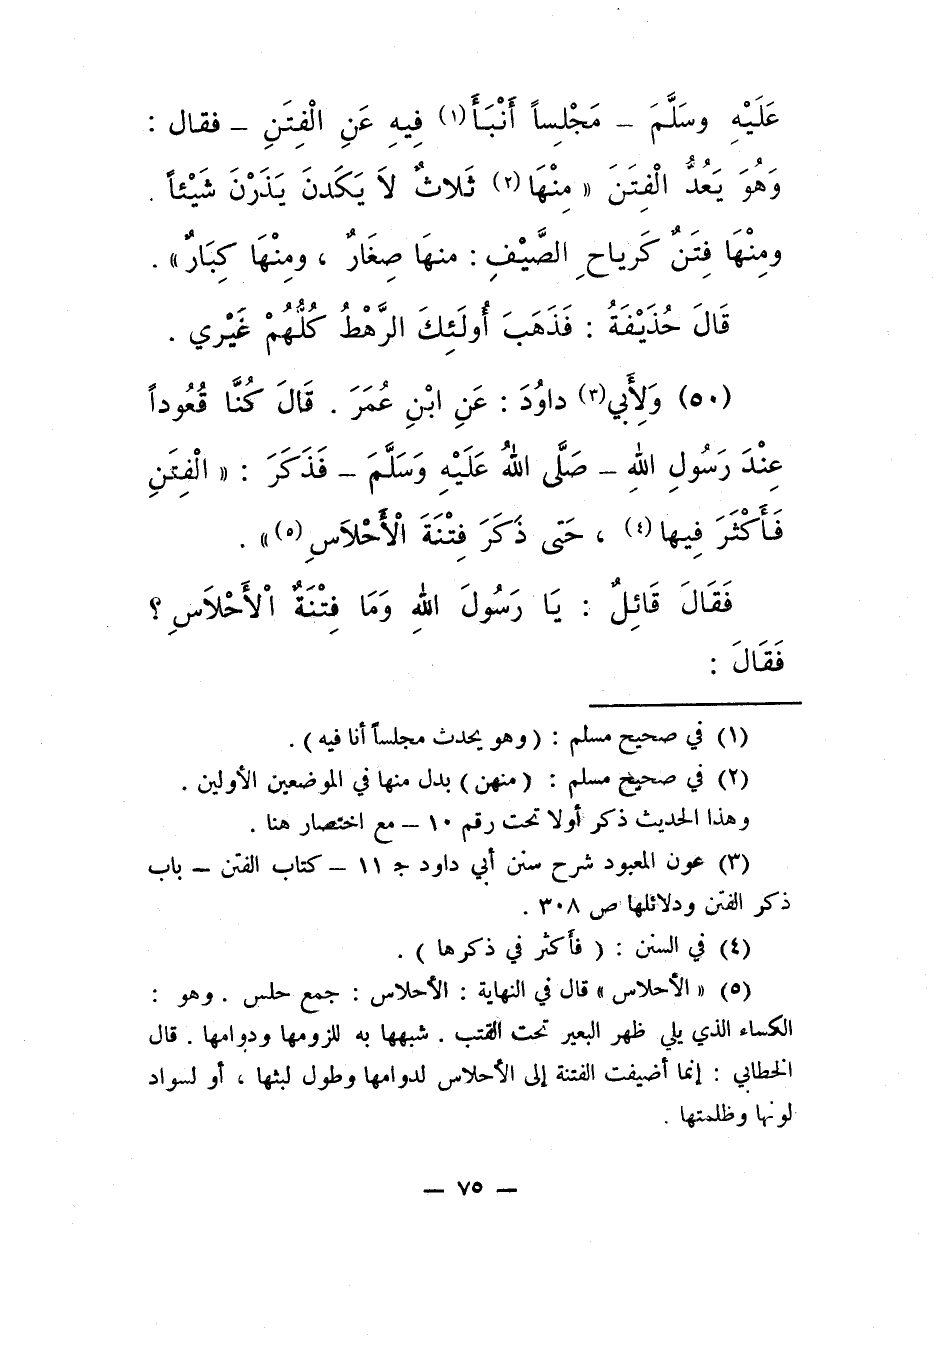 عَلَيْهِ وسَلَّمَ – مَجْلِساً أَنْبَأَ(١) فِيهِ عَنِ الْفِتَنِ – فقال :
وَهُوَ يَعُدُّ الْفِتَنَ « مِنْهَا(٢) ثَلاثٌ لاَ يَكَدنَ يَذَرْنَ شَيْئاً .
ومِنْهَا فِتَنٌ كَرياحِ الصَّيْفِ : منهَا صِغَارٌ ، ومِنْهَا كِبَارٌ» .
قَالَ حُذَيْفَةُ : فَذَهَبَ أُولَئِكَ الرَّهْطُ كُلُّهُمْ غَيْري .
(٥٠) وَلِأَبي(٣) داوُدَ : عَنِ ابْنِ عُمَرَ . قَالَ كُنَّا قُعُوداً
عِنْدَ رَسُولِ اللهِ – صَلَّى اللهُ عَلَيْهِ وَسَلَّمَ – فَذَكَرَ : « الْفِتَنِ
فَأَكْثَرَ فِيها(٤) ، حَتى ذَكَرَ فِتْنَةَ الْأَحْلاَسِ(٥)» .
فَقَالَ قَائِلٌ : يَا رَسُولَ اللهِ وَمَا فِتْنَةٌ اْلأَحْلاَسِ ؟
فَقَالَ :
(١) في صحيح مسلم : (وهو يحدث مجلساً أنا فيه) .
(٢) في صحيح مسلم : (منهن) بدل منها في الموضعين الأولين .
وهذا الحديث ذكر أولا تحت رقم ١٠ – مع اختصار هنا .
(٣) عون المعبود شرح سنن أبي داود ج ١١ – كتاب الفتن – باب
ذكر الفتن ودلائلها ص ٣٠٨ .
(٤) في السنن : ( فأكثر في ذكرها ) .
(٥) « الأحلاس » قال في النهاية : الأحلاس : جمع حلس . وهو :
الكساء الذي يلي ظهر البعير تحت القتب . شبهها به للزومها ودوامها . قال
الخطابي : إنما أضيفت الفتنة إلى الأحلاس لدوامها وطول لبثها ، أو لسواد
لونها وظلمتها .
– ٧٥ –